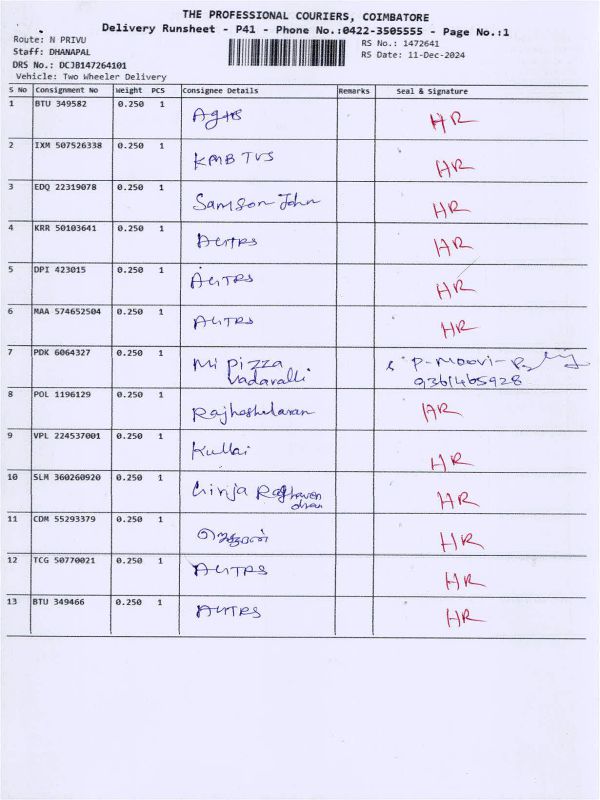 THE PROFESSIONAL COURIERS, COIMBATORE
Delivery Runsheet - P41 - Phone No.:0422-3505555 - Page No.:1
Route: N PRIVU
RS No.: 1472641
Staff: DHANAPAL
RS Date: 11-Dec-2024
DRS No.: DCJB147264101
Vehicle: Two Wheeler Delivery
S No Consignment No Weight PCS Consignee Details Remarks Seal & Signature
1 BTU 349582 0.250 1 HR
2 IXM 507526338 0.250 1 KMB TVS HR
3 EDQ 22319078 0.250 1 Samson John HR
4 KRR 50103641 0.250 1 HR
5 DPI 423015 0.250 1 HR
6 MAA 574652504 0.250 1 HR
7 PDK 6064327 0.250 1 Mi pizza
Vadavalli 9361465928
8 POL 1196129 0.250 1 HR
9 VPL 224537001 0.250 1 Kullai HR
10 SLM 360260920 0.250 1 Girija HR
11 CDM 55293379 0.250 1 HR
12 TCG 50770021 0.250 1 HR
13 BTU 349466 0.250 1 HR